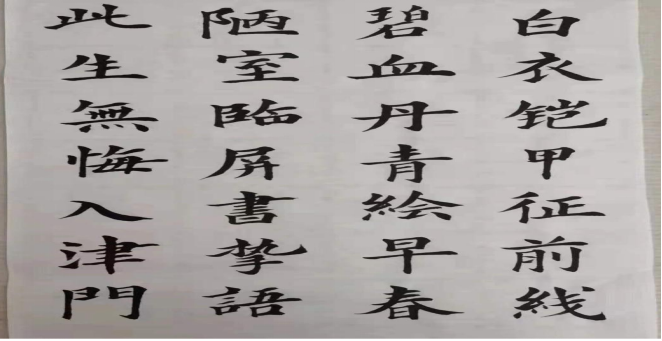 白衣铠甲征前线
碧血丹青絵早春
陋室臨屏書挚語
此生無悔入津門